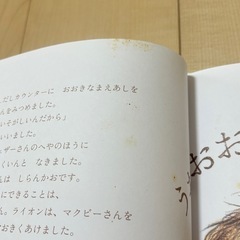 だしカウンターに おおきなまえあしを
んをみつめました。
いそがしいんだから」
いいました。
ザーさんのへやのほうに
くいんと なきました。
んは しらんかおです。
にできることは、
ん。ライオンは、マクビーさんを
おきくあけました。
うおお